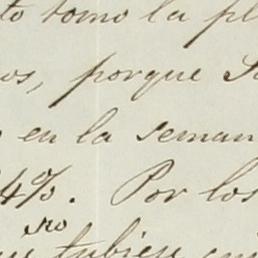 to tomo la pl
os, porque S
en la seman
4%. Por los
no
tubien